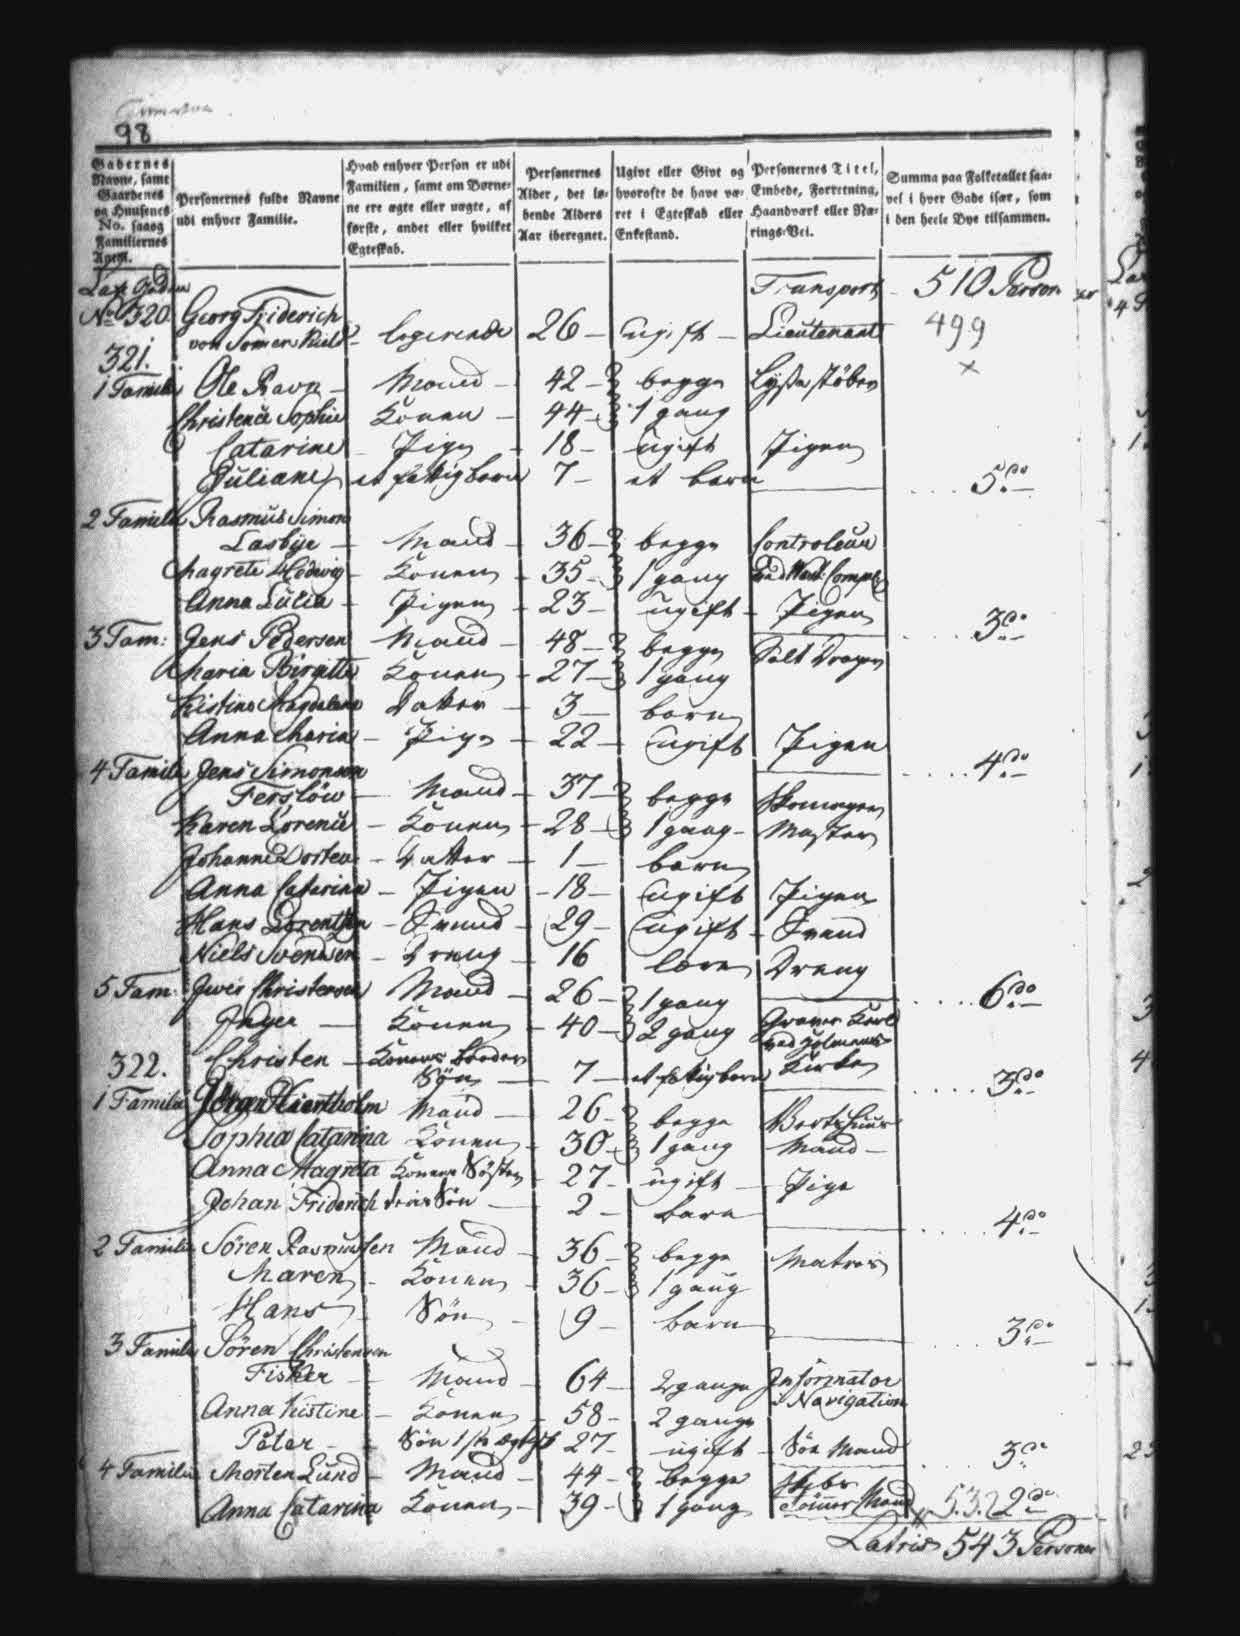 98
Gadernes Navne, samt Gaardenes og Huusenes No. saaog Familiernes Antal.
Personernes fulde Navne udi enhver Familie.
Hvad enhver Person er udi Familien, samt om Børnene ere ægte eller uægte, af første, andet eller hvilket Egteskab.
Personernes Alder, det løbende Alders Aar iberegnet.
Ugivt eller Givt og hvorofte de have været i Egteskab eller Enkestand.
Personernes Titel, Embede, Forretning, Haandværk eller Nærings-Vei.
Summa paa Folketallet saavel i hver Gade især, som i den heele Bye tilsammen.
Transport 510 Person
No 320. Georg Friderich
von Somer logerende 26 ugift Lieutenant 499
321. x
1 Familie Ole Ravn Mand 42 begge Lyssestøber
Christence Sophie Konen 44 1 gang
Catarine Pige 18 ugift Pigen
Juliane et fattig barn 7 et barn 5 do
2 Familie Rasmus Simon
Lasbye Mand 36 begge Controleur
Magrete Hedevig Konen 35 1 gang
Anna Lucia Pigen 23 ugift Pigen 3 do
3 Fam: Jens Pedersen Mand 48 begge Salt Drager
Maria Birgitte Konen 27 1 gang
Kistine Magdalena Datter 3 barn
Anna Maria Pige 22 ugift Pigen 4 do
4 Familie Jens Simonsen
Ferslöw Mand 37 begge Skomager
Karen Lorence Konen 28 1 gang Mester
Johanne Dortea Datter 1 barn
Anna Catarina Pigen 18 ugift Pigen
Hans Lorentzen Svend 29 ugift Svend
Niels Svendsen Dreng 16 lære Dreng 6 do
5 Fam: Jwer Christensen Mand 26 1 gang
Inger Konen 40 2 gang Graver Karl ved Holmens Kirke
322. Christen Konens Broder Søn 7 et fattig barn 3 do
1 Familie Jörgen Hiertholm Mand 26 begge Vertshuus
Sophia Catarina Konen 30 1 gang Mand
Anna Magreta Konens Søster 27 ugift Pige
Johan Friderich deres Søn 2 barn 4 do
2 Familie Sören Rasmussen Mand 36 begge Matros
Maren Konen 36 1 gang
Hans Søn 9 barn 3 do
3 Familie Sören Christensen
Fisker Mand 64 2 gange Informator
Anna Kistine Konen 58 2 gange i Navigation
Peter Søn 1ste Egtesk 27 ugift Søe Mand 3 do
4 Familie Morten Lund Mand 44 begge Skibs
Anna Catarina Konen 39 1 gang Tømmer Mand 532 2 do
Latris 543 Personer